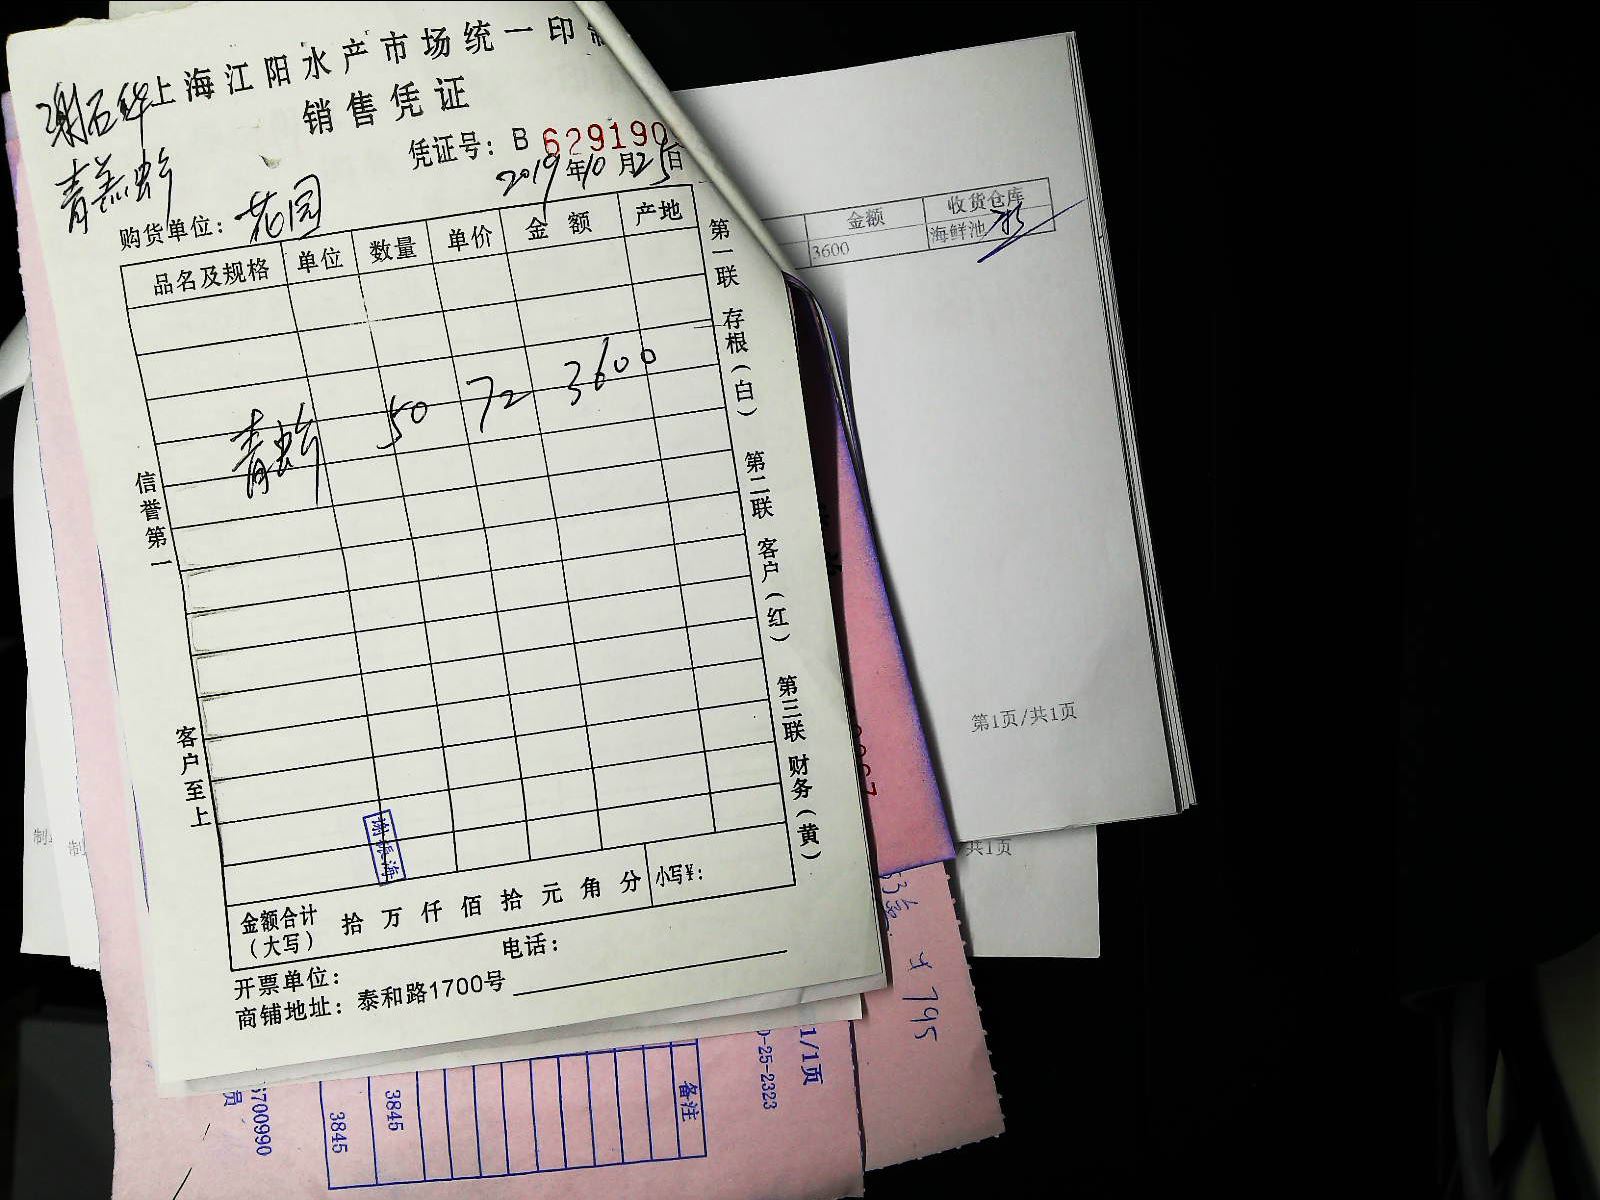 上海江阳水产市场统一印
销售凭证
谢石华
青羔虾
凭证号：B 629190
2019年10月25日
购货单位：花园
品名及规格 单位 数量 单价 金额 产地
青虾 50 72 3600
信誉第一
客户至上
第一联 存根（白） 第二联 客户（红） 第三联 财务（黄）
金额合计（大写） 拾 万 仟 佰 拾 元 角 分 小写¥：
开票单位： 电话：
商铺地址：泰和路1700号
金额 收货仓库
3600 海鲜池
第1页/共1页
共1页
¥795
1/1页
0-25-2323
备注
3845
3845
6700990
员
制
制